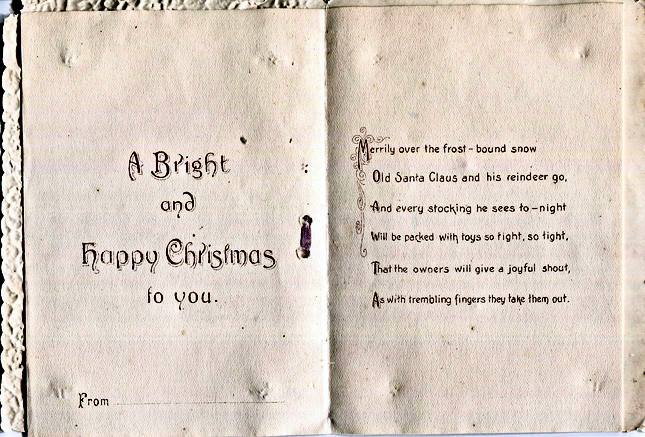 A Bright
and
Happy Christmas
to you.
From
Merrily over the frost-bound snow
Old Santa Claus and his reindeer go,
And every stocking he sees to-night
Will be packed with toys so tight, so tight,
That the owners will give a joyful shout,
As with trembling fingers they take them out.